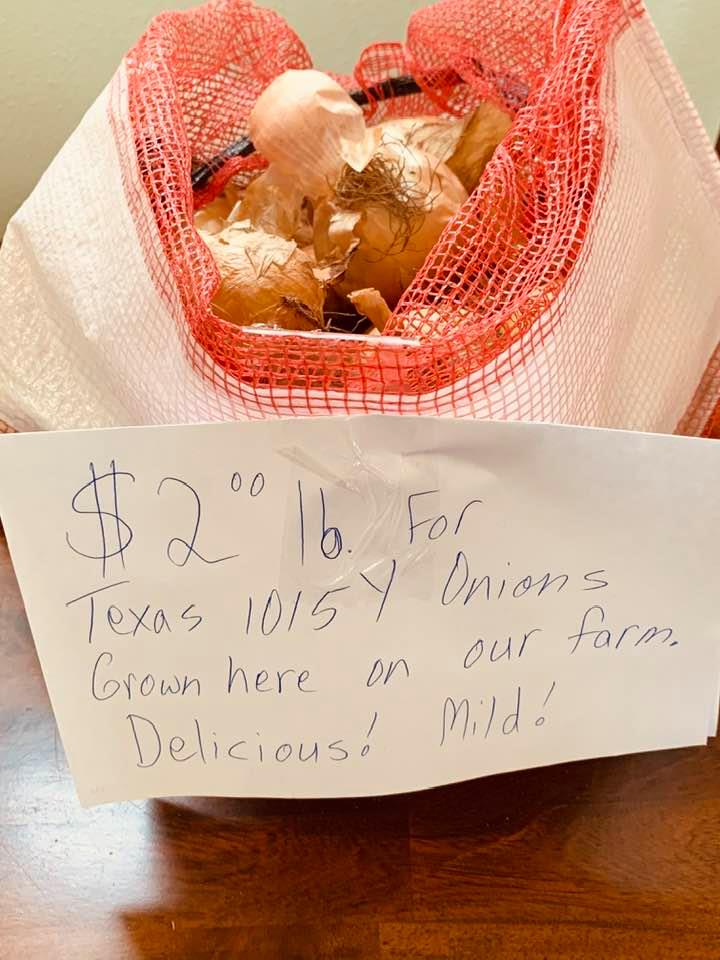 $2.00 lb. For
Texas 1015Y Onions
Grown here on our farm.
Delicious! Mild!